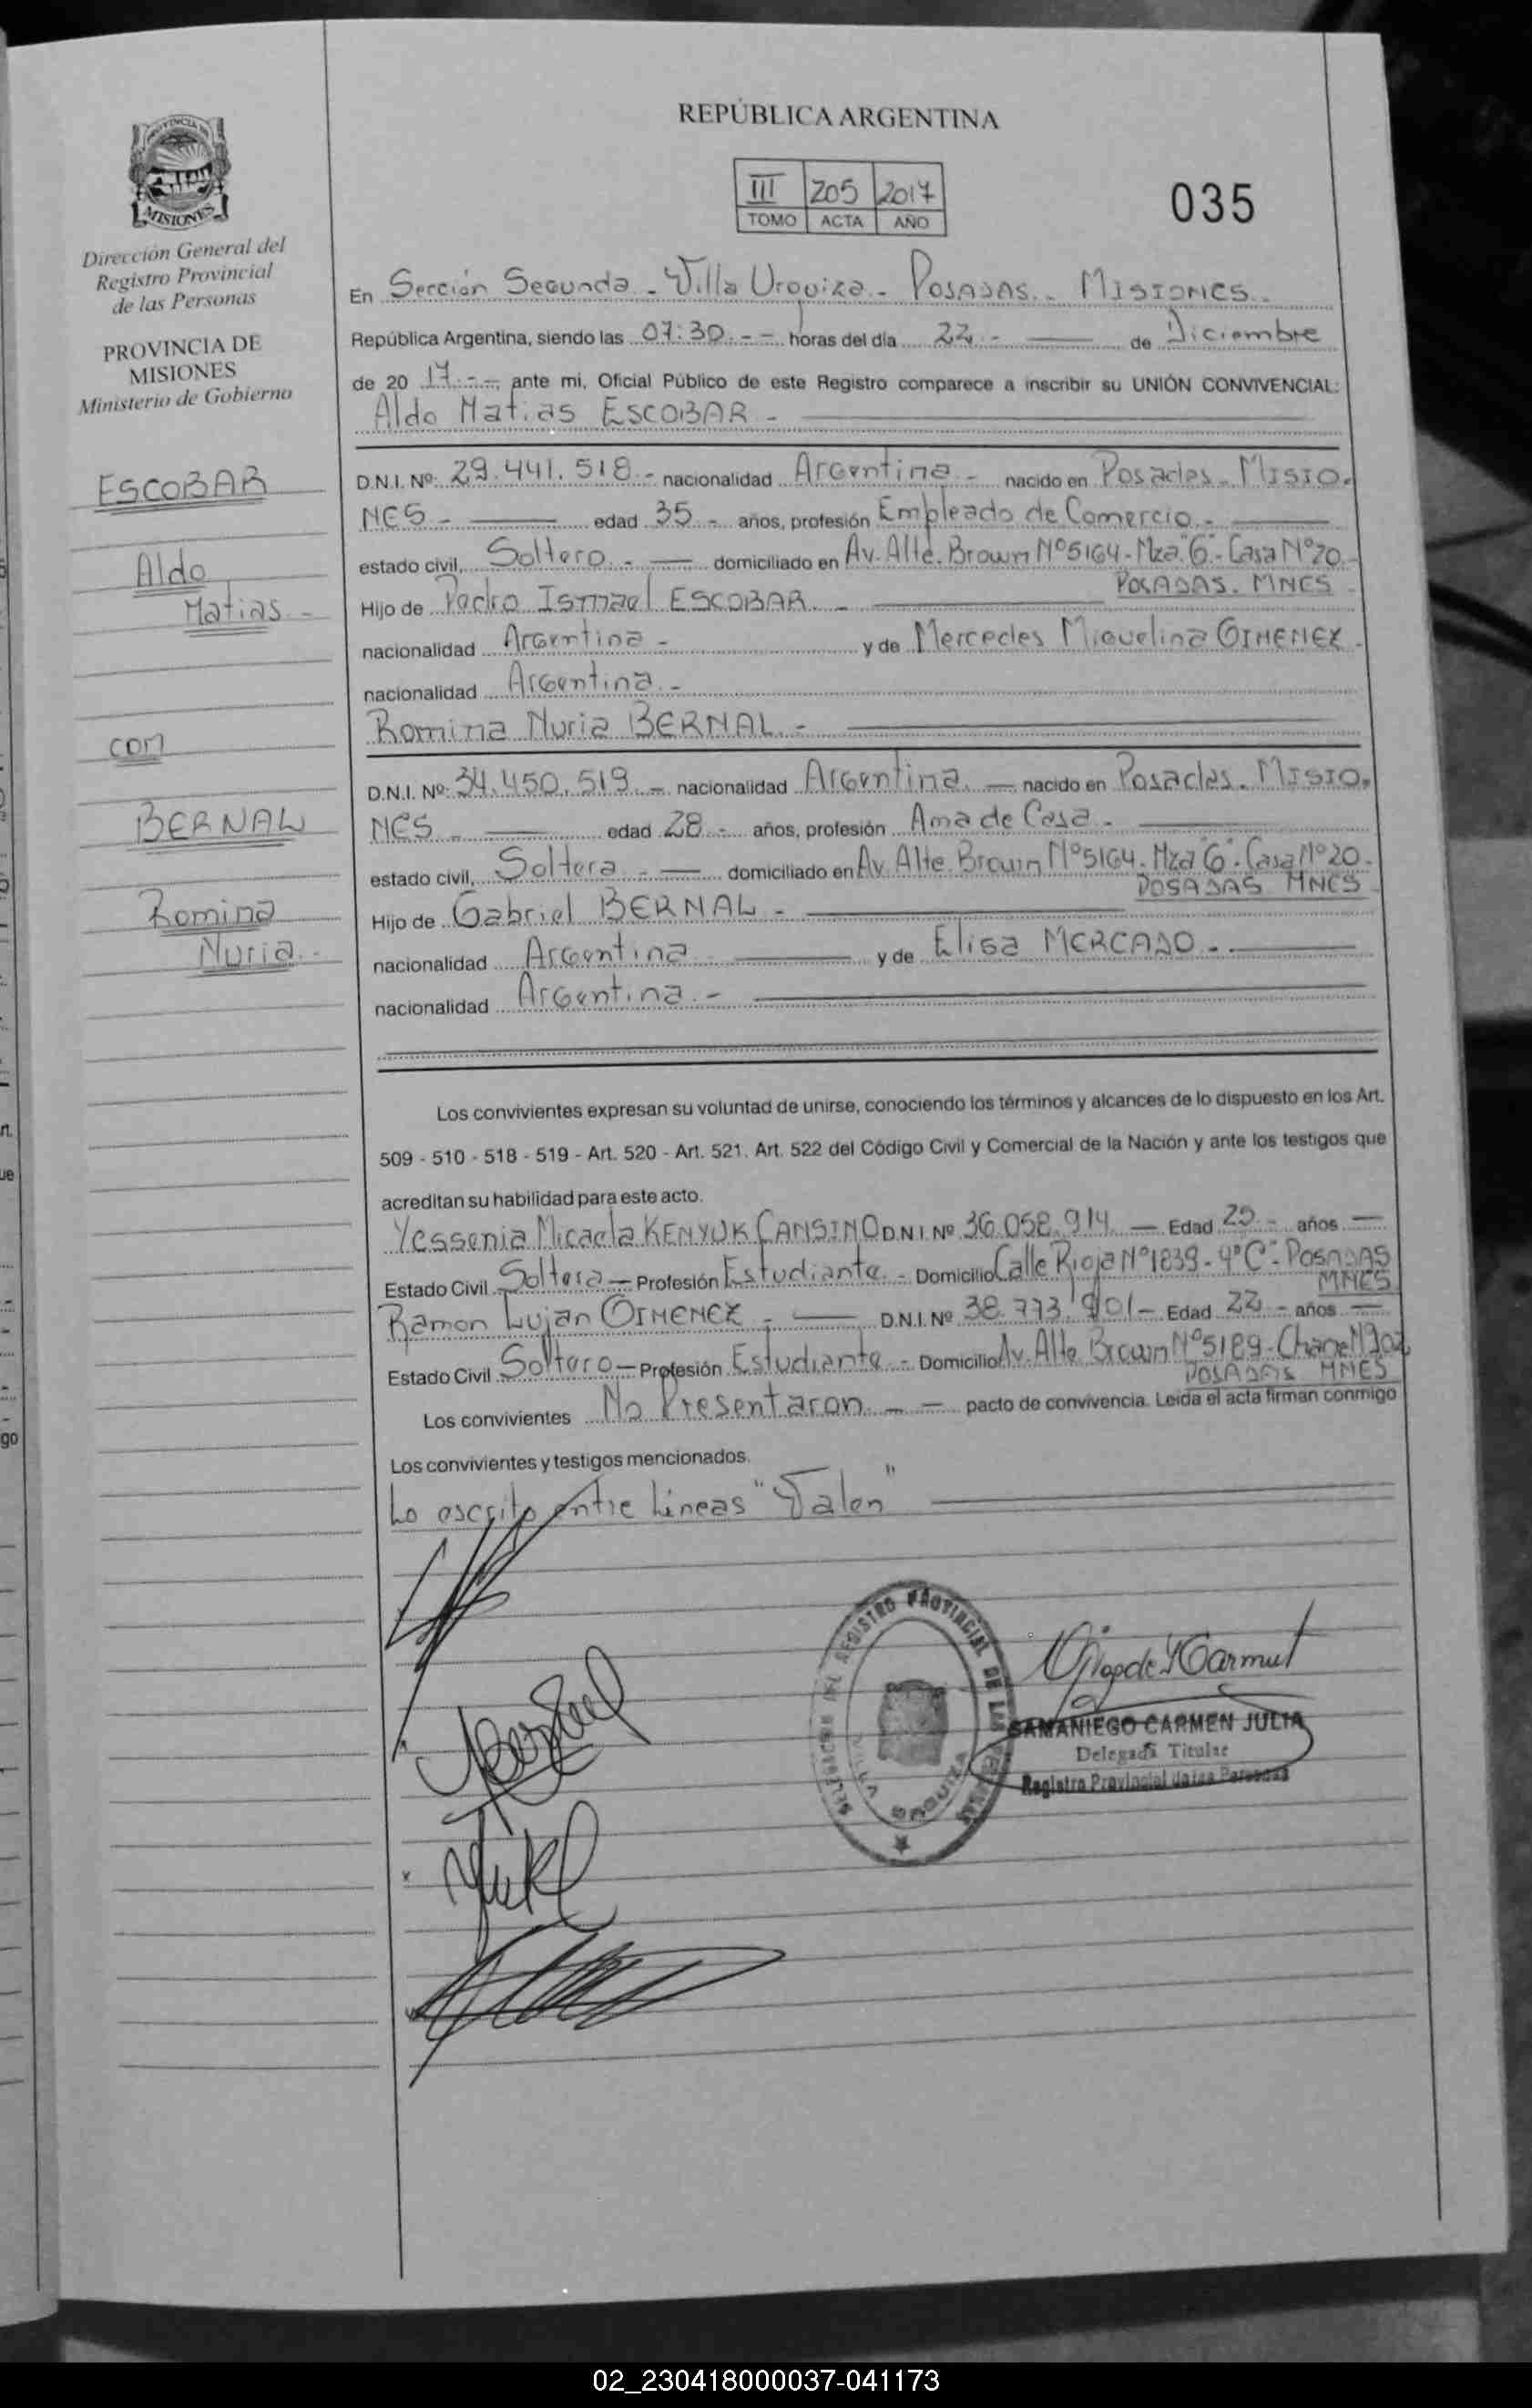 REPÚBLICA ARGENTINA
III 205 2017
TOMO ACTA AÑO
035
PROVINCIA DE
MISIONES
Dirección General del
Registro Provincial
de las Personas
PROVINCIA DE
MISIONES
Ministerio de Gobierno
ESCOBAR
Aldo
Matias -
con
BERNAL
Romina
Nuria. -
En Sección Segunda - Villa Urquiza - POSADAS - MISIONES -
República Argentina, siendo las 07:30 - - horas del día 22 - de Diciembre
de 20 17 - -, ante mi, Oficial Público de este Registro comparece a inscribir su UNIÓN CONVIVENCIAL:
Aldo Matias ESCOBAR -
D.N.I. Nº: 29.441.518 - nacionalidad Argentina - nacido en Posadas - MISIO-
NES - edad 35 - años, profesión Empleado de Comercio -
estado civil, Soltero - domiciliado en Av. Alte. Brown Nº 5164 - Mza "G" - Casa Nº 20 -
POSADAS. MNES -
Hijo de Pedro Ismael ESCOBAR -
nacionalidad Argentina - y de Mercedes Miguelina GIMENEZ -
nacionalidad Argentina -
Romina Nuria BERNAL -
D.N.I. Nº: 34.450.519 - nacionalidad Argentina - nacido en Posadas - MISIO-
NES - edad 28 - años, profesión Ama de Casa -
estado civil, Soltera - domiciliado en Av. Alte. Brown Nº 5164 - Mza "G" - Casa Nº 20 -
POSADAS MNES -
Hijo de Gabriel BERNAL -
nacionalidad Argentina y de Elisa MERCADO -
nacionalidad Argentina -
Los convivientes expresan su voluntad de unirse, conociendo los términos y alcances de lo dispuesto en los Art.
509 - 510 - 518 - 519 - Art. 520 - Art. 521. Art. 522 del Código Civil y Comercial de la Nación y ante los testigos que
acreditan su habilidad para este acto.
Yessenia Micaela KENYUK CANSINO D.N.I. Nº 36.058.914 - Edad 25 - años -
Estado Civil Soltera - Profesión Estudiante - Domicilio Calle Rioja Nº 1839 - 4º "C" - POSADAS
MNES
Ramon Lujan GIMENEZ - D.N.I. Nº 38.773.901 - Edad 22 - años -
Estado Civil Soltero - Profesión Estudiante - Domicilio Av. Alte Brown Nº 5189 - Nº 202
POSADAS MNES
Los convivientes No Presentaron - - pacto de convivencia. Leída el acta firman conmigo
Los convivientes y testigos mencionados.
Lo escrito entre Lineas "Valen"
REGISTRO PROVINCIAL DE LAS PERSONAS
VILLA URQUIZA
SAMANIEGO CARMEN JULIA
Delegada Titular
Registro Provincial de las Personas
02_230418000037-041173